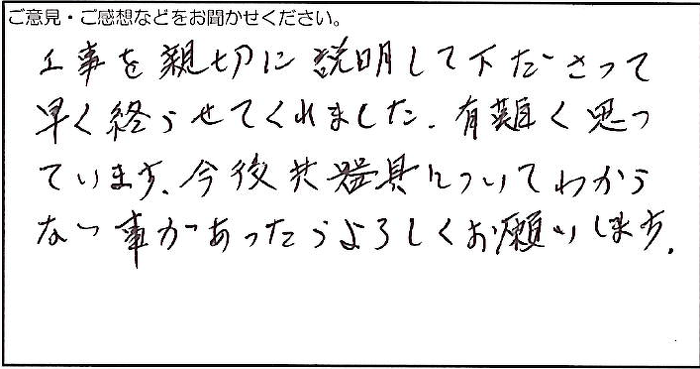 ご意見・ご感想などをお聞かせください。
工事を親切に説明して下ださって
早く終らせてくれました。有難く思っ
ています。今後共器具についてわから
ない事があったらよろしくお願いします。